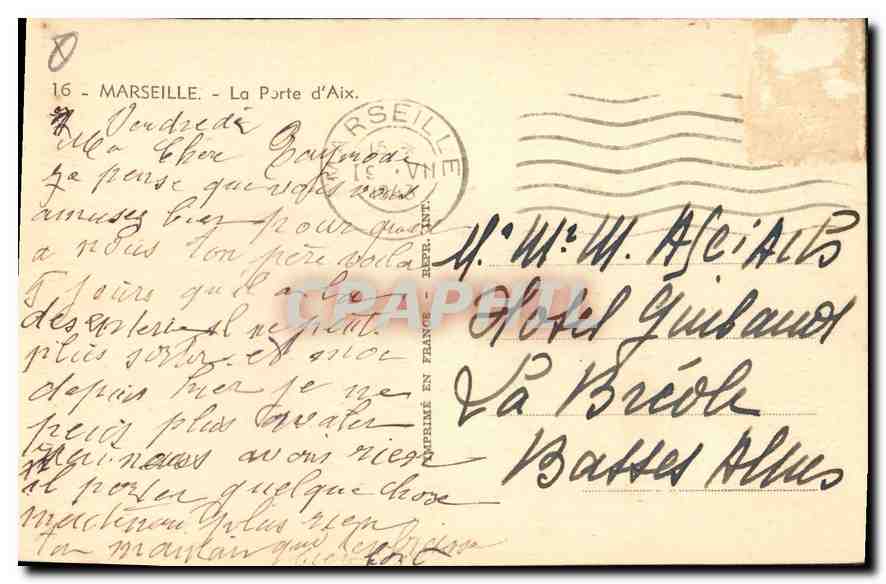 16 - MARSEILLE. - La Porte d'Aix.
Vendredi
Ma Chere Raymonde
je pense que vous vous
amusez bien pour quand
a nous ton père voila
5 jours qu'il a la
desenterie il ne peut
plus sortir et moi
depuis hier je ne
peus plus avaler
nous avons rien
il porter quelque chose
plus rien
ta maman qui
MARSEILLE
15
19 VII
IMPRIMÉ EN FRANCE - REPR. INT.
CPAPHIL
Mr Me M. Ascialis
Hotel Guibaud
La Bréole
Basses Alpes